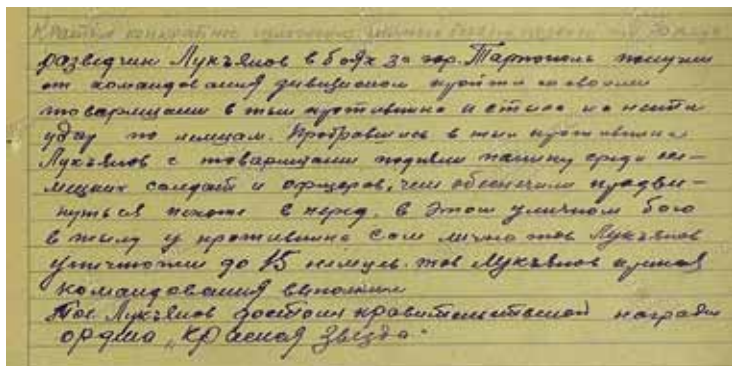 Краткое конкретное изложение личного боевого подвига
разведчик Лукъянов в боях за гор. Тарнополь получил
от командования дивизионом пройти со своими
товарищами в тыл противника и с тыла нанести
удар по немцам. Пробравшись в тыл противника
Лукъянов с товарищами подняли панику среди не-
мецких солдат и офицеров, чем обеспечили продви-
нуться пехоте в перед. в этом уличном бою
в тылу у противника сам лично тов Лукъянов
уничтожил до 15 немцев. тов Лукъянов приказ
командования выполнил
Тов. Лукъянов достоин правительственной награды
ордена „Красная Звезда".